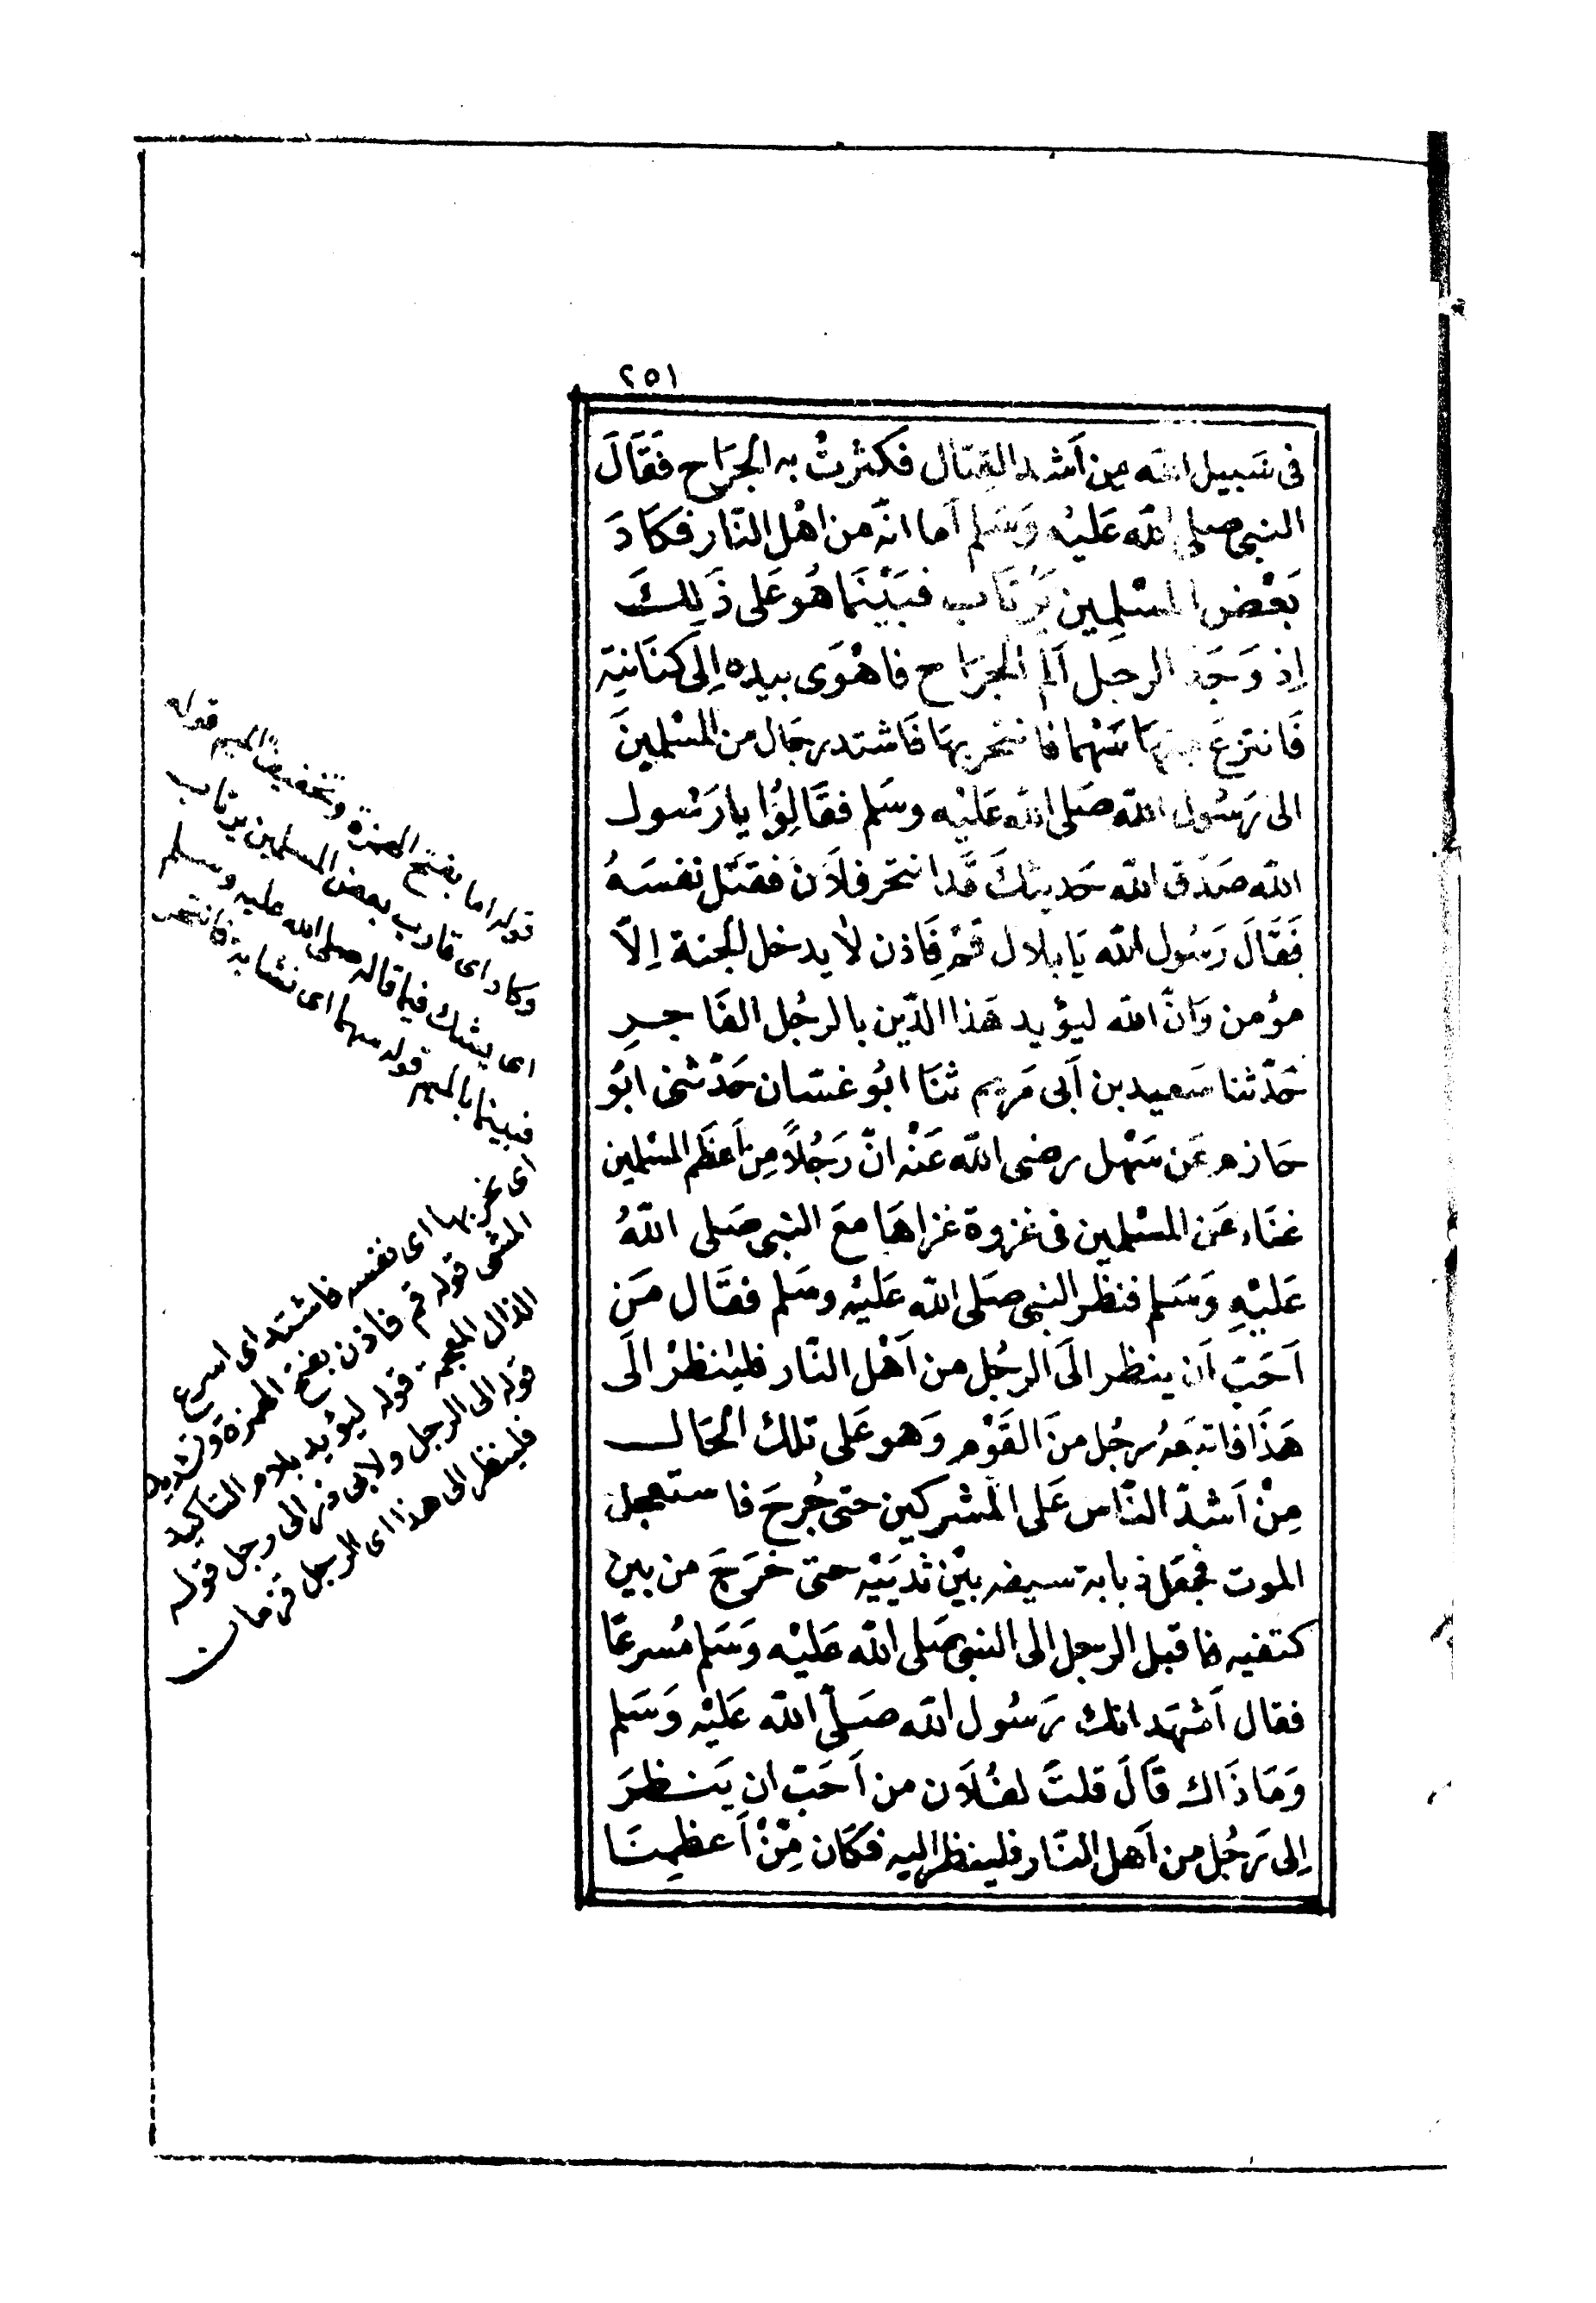 ٢٥١
فى سَبيل الله مِن أشد القِتَال فكثرتْ به الجرَاح فَقَالَ
النبى صلى الله عَليْه وَسَلم أما انّه من اهْل النّار فكَادَ
بَعْض المسْلِمِين يَرتَاب فبَيْنَمَا هُو عَلى ذَلِكَ
اِذ وَجَدَ الرجل ألم الجرَاح فاهْوَى بيده اِلَى كنَانتِه
فَانتزعَ منهَا سَهْما فانتحر بهَا فَاشتد رجَال من المسْلمِينَ
الى رَسُول الله صَلى الله عَليْه وسَلم فقَالوُا يا رَسُول
الله صَدّق الله حَديثكَ قَد انتحر فلاَن فقتَل نفسَهُ
فَقَالَ رَسُول الله يَا بلال قمْ فَاذن لاَ يدخل الجنة اِلاّ
مؤمن وَانّ الله ليؤيد هَذا الدّين بالرجُل الفَاجرِ
حَدّثنا سَعيد بن أبى مَريم ثنَا ابُو غسّان حَدّثنى ابُو
حَازم عَن سَهْل رضى الله عَنْه انّ رَجُلاً مِن أعظَم المسْلمين
غنَاء عَن المسْلمين فى غزوة غزاهَا معَ النبى صَلى اللهُ
عَليْهِ وَسَلم فنظر النبى صَلى الله عَليْه وسَلم فقَال مَن
اَحَبّ اَن ينظر الَى الرجُل من اَهْل النّار فليْنظرْ الَى
هَذَا فاتبَعَهُ رجُل منَ القَوْم وَهو عَلى تلك الحَال
مِنْ اَشدّ النّاس عَلى المشركين حتى جُرحَ فاستعجل
الموت فجعَل ذبابة سيفه بيْن ثديَيْه حتى خرَجَ من بين
كتفيه فاقبل الرجل الى النبى صَلى الله عَليْه وَسَلم مُسرعًا
فقال أشهَد انك رَسُول الله صَلّى الله عَليْه وَسَلم
وَمَا ذَاك قَالَ قلتَ لفُلاَن من اَحَبّ ان يَنظرَ
اِلى رَجُل من اَهل النّار فلينظر اليه فكَان مِنْ اَعظمِنَا
قوله اما بفتح الهمزة وتخفيف الميم قوله
وكاد اى قارب بعض المسلمين يرتاب
اى يشك فيما قاله صلى الله عليه وسلم
فبينما بالميم قوله سهما اى نشابة فانتحر
اى نحر بها اى نفسه فاشتد اى اسرع
المشى قوله قم فاذن بفتح الهمزة وتشديد
الذال المعجمة قوله ليؤيد بلام التاكيد
قوله الى الرجل ولابى ذر الى رجل قوله
فلينظر الى هذا اى الرجل قزمان